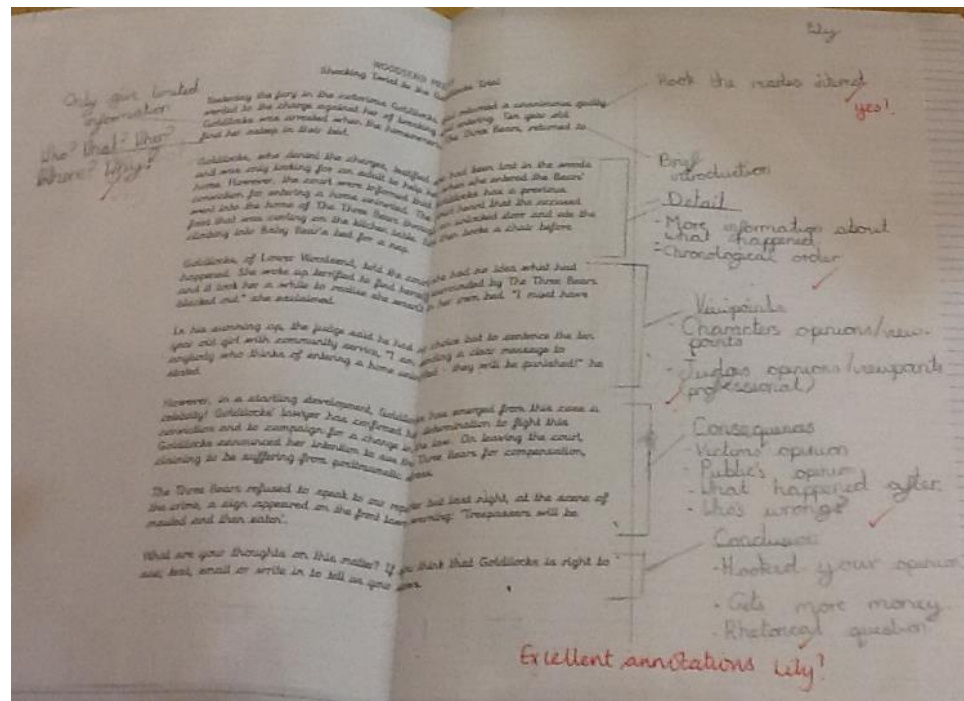 Lily
WOODSEND
Shocking Twist to the Goldilocks Trial
Yesterday the jury in the notorious Goldilocks returned a unanimous guilty
verdict to the charge against her of breaking and entering. Ten year old
Goldilocks was arrested when the homeowners, The Three Bears, returned to
find her asleep in their bed.
Goldilocks, who denied the charges, testified had been lost in the woods
and was only looking for an adult to help her when she entered the Bears'
home. However, the court were informed that Goldilocks has a previous
conviction for entering a home uninvited. The heard that the accused
went into the home of The Three Bears through an unlocked door and ate the
food that was cooling on the kitchen table. then broke a chair before
climbing into Baby Bear's bed for a nap.
Goldilocks, of Lower Woodsend, told the court she had no idea what had
happened. She woke up terrified to find herself surrounded by The Three Bears
and it took her a while to realise she wasn't in her own bed. "I must have
blacked out." she exclaimed.
In his summing up, the judge said he had no choice but to sentence the ten
year old girl with community service, "I am sending a clear message to
anybody who thinks of entering a home uninvited - they will be punished!" he
stated.
However, in a startling development, Goldilocks has emerged from this case a
celebrity! Goldilocks' lawyer has confirmed determination to fight this
conviction and to campaign for a change in the law. On leaving the court,
Goldilocks announced her intention to sue the Three Bears for compensation,
claiming to be suffering from posttraumatic stress.
The Three Bears refused to speak to our reporter but last night, at the scene of
the crime, a sign appeared on the front lawn warning: 'Trespassers will be
mauled and then eaten'.
What are your thoughts on this matter? If you think that Goldilocks is right to
sue; text, email or write in to tell us your views.
Only give limited
information
Who? What? When?
Where? Why?
Hook the readers interest
yes!
Brief
introduction
Detail
- More information about
what happened
- Chronological order
Viewpoints
- Characters opinions/view-
points
- Judges opinions/viewpoints
professional)
Consequences
- Victims' opinion
- Public's opinion
- What happened after
- Who's wrong?
Conclusion
- Hooked your opinion
- Gets more money
- Rhetorical question
Excellent annotations Lily!